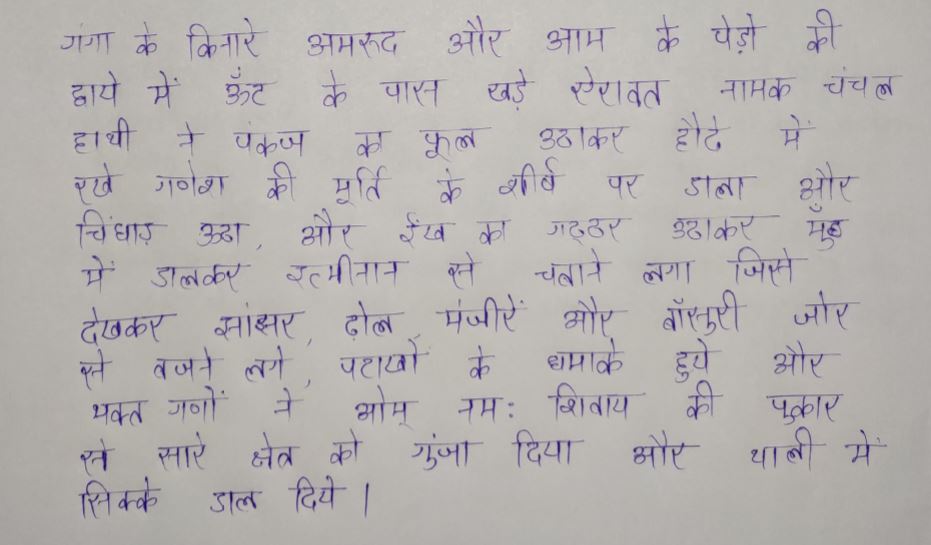 गंगा के किनारे अमरुद और आम के पेड़ो की
छाये में ऊँट के पास खड़े ऐरावत नामक चंचल
हाथी ने पंकज का फूल उठाकर हौदे में
रखे गणेश की मूर्ति के शीर्ष पर डाला और
चिंघाड़ उठा, और ईख का गठ्ठर उठाकर मुँह
में डालकर इत्मीनान से चबाने लगा जिसे
देखकर झांझर, ढोल, मंजीरें और बाँसुरी जोर
से बजने लगे, पटाखों के धमाके हुये और
भक्त गणों ने ओम् नम: शिवाय की पुकार
से सारे क्षेत्र को गुंजा दिया और थाली में
सिक्के डाल दिये।